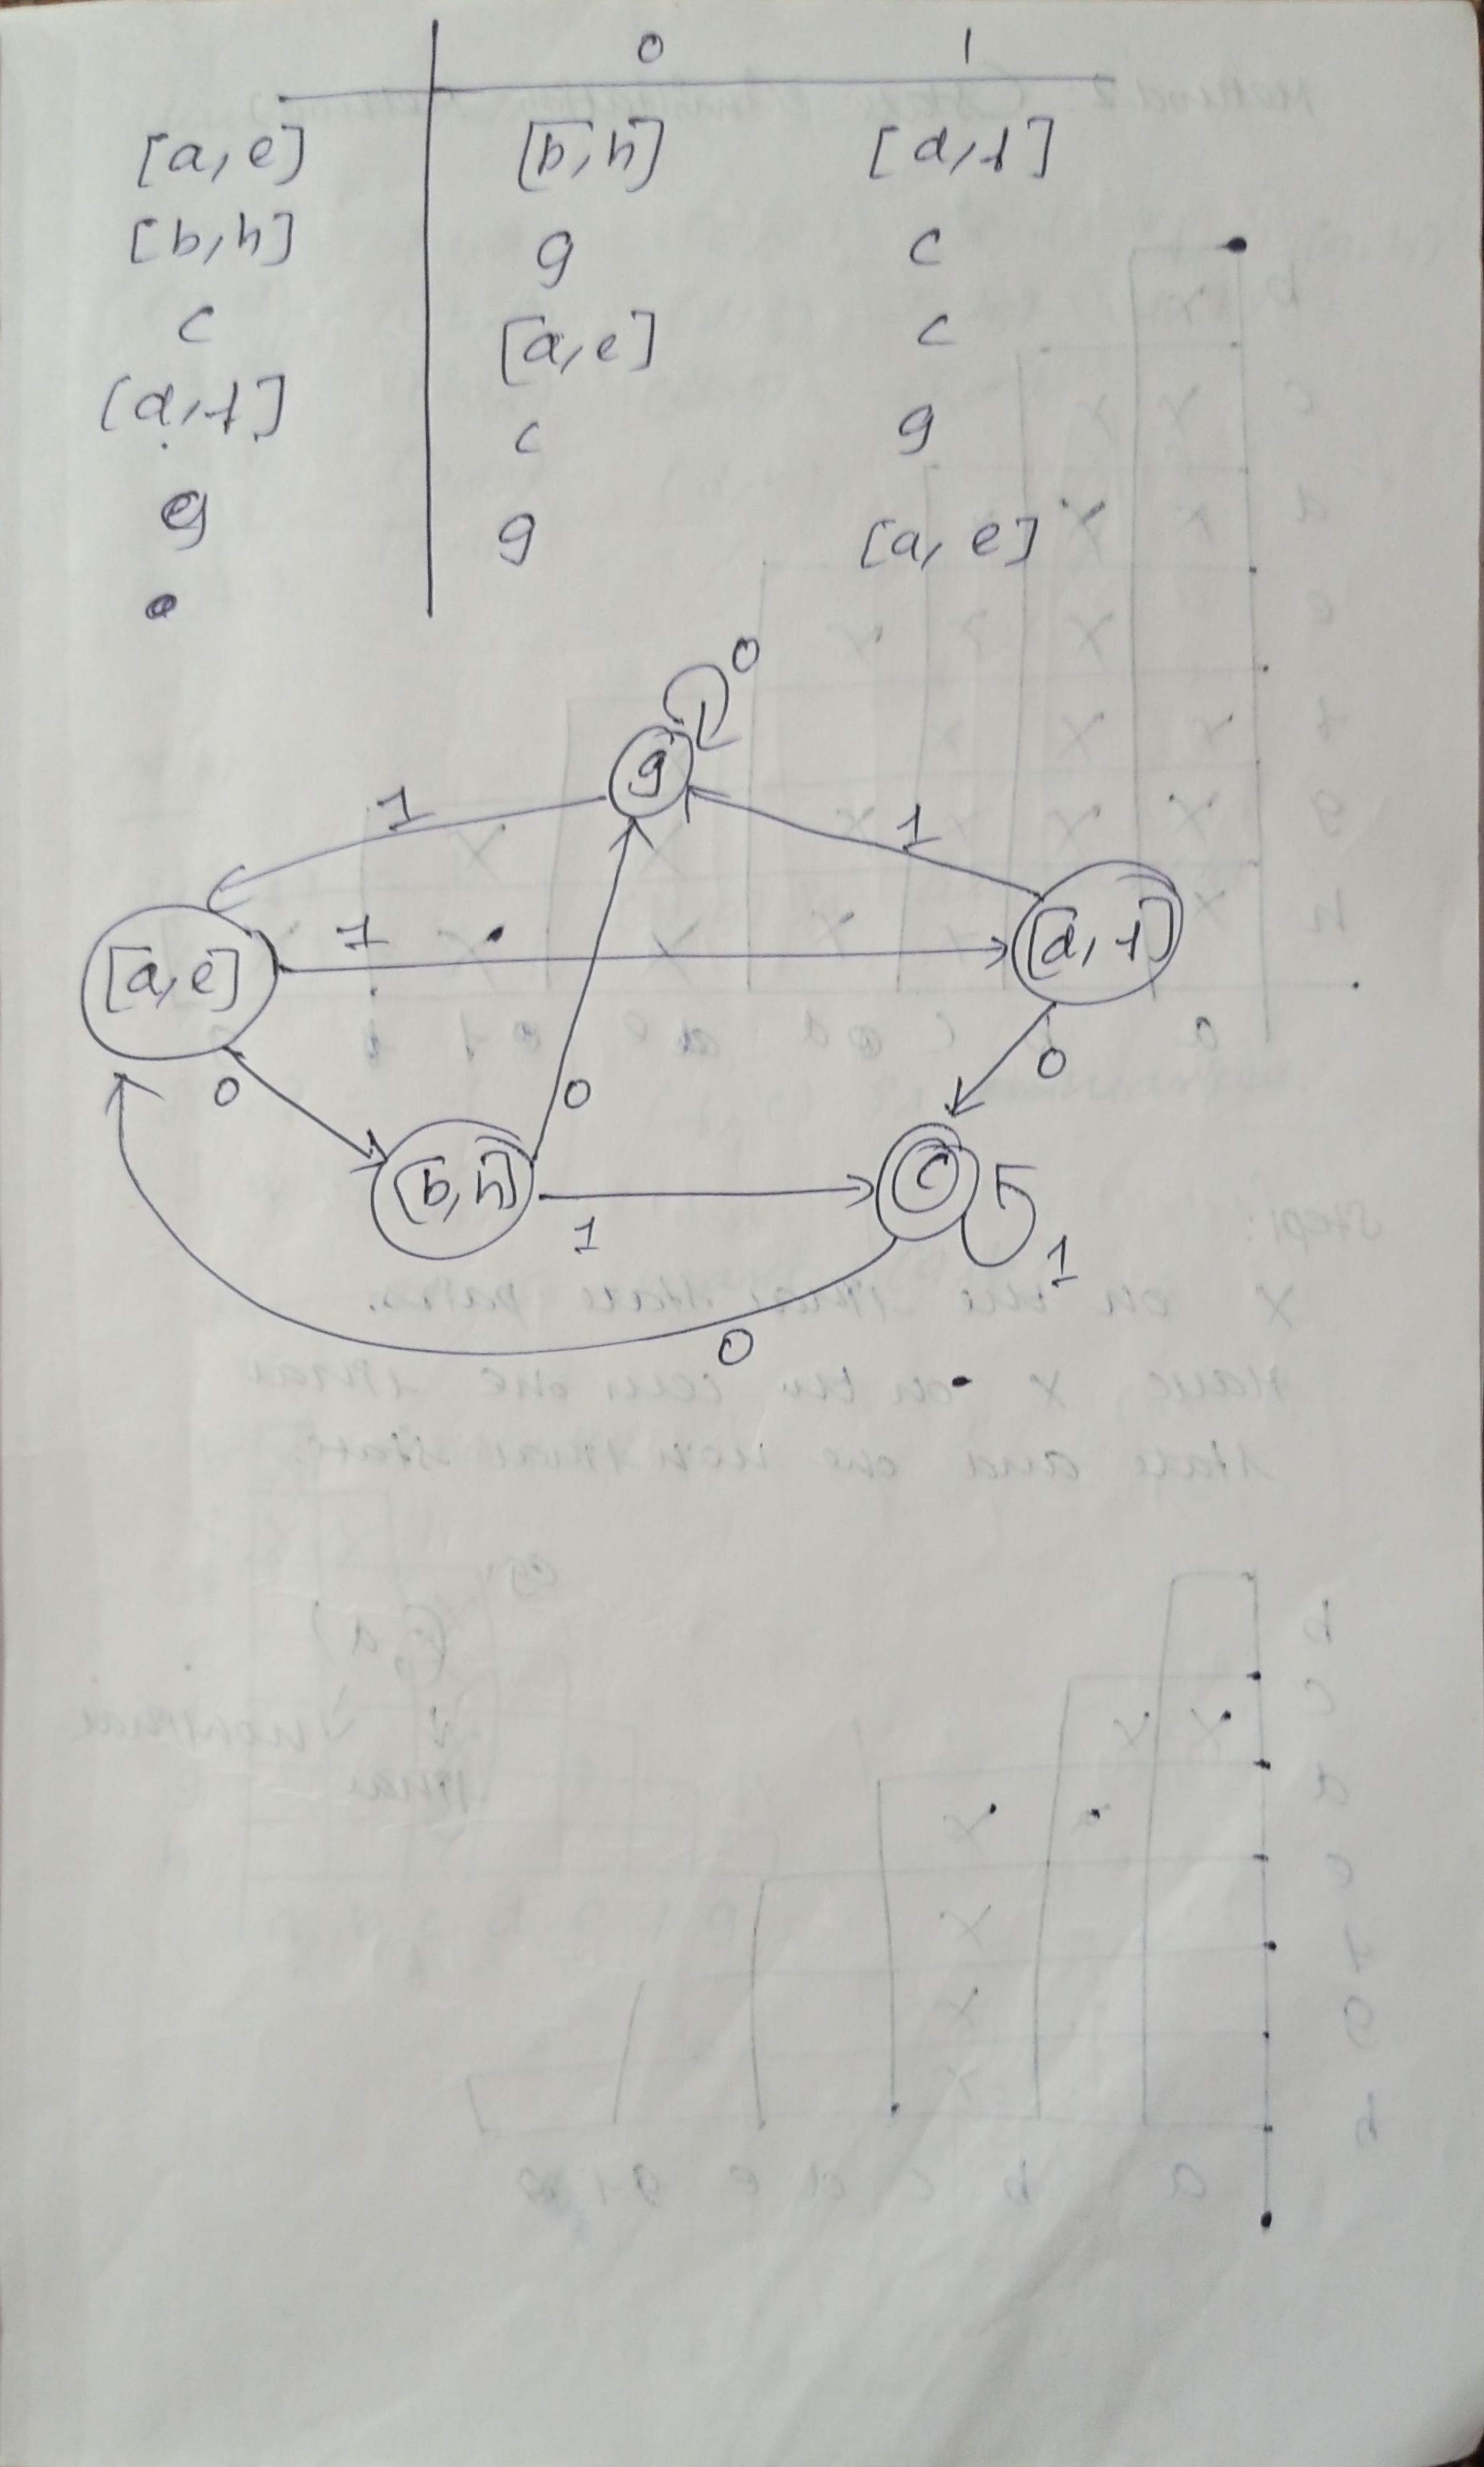 0 1
[a, e] [b, h] [d, f]
[b, h] g c
c [a, e] c
[d, f] c g
g g [a, e]
0
g
1 1
[a, e] 1 [d, f]
0 0 0
[b, h] c
1 1
0